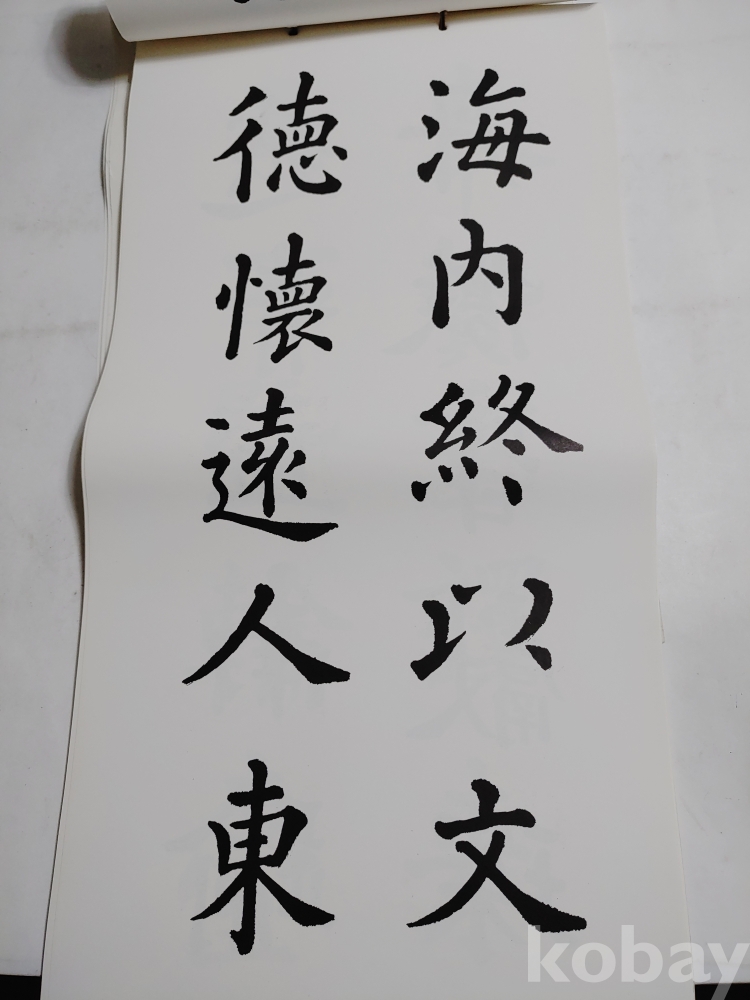 海内終以文
德懷遠人東
kobay